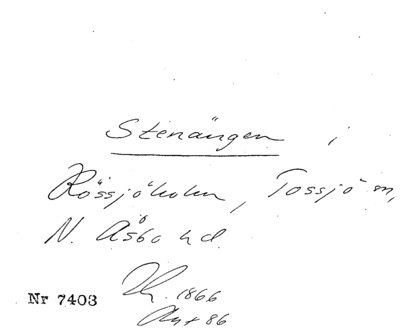 Stenängen i
Rössjöholm, Tossjö sn,
N. Åsbo hd
Nr 7403
1866
86